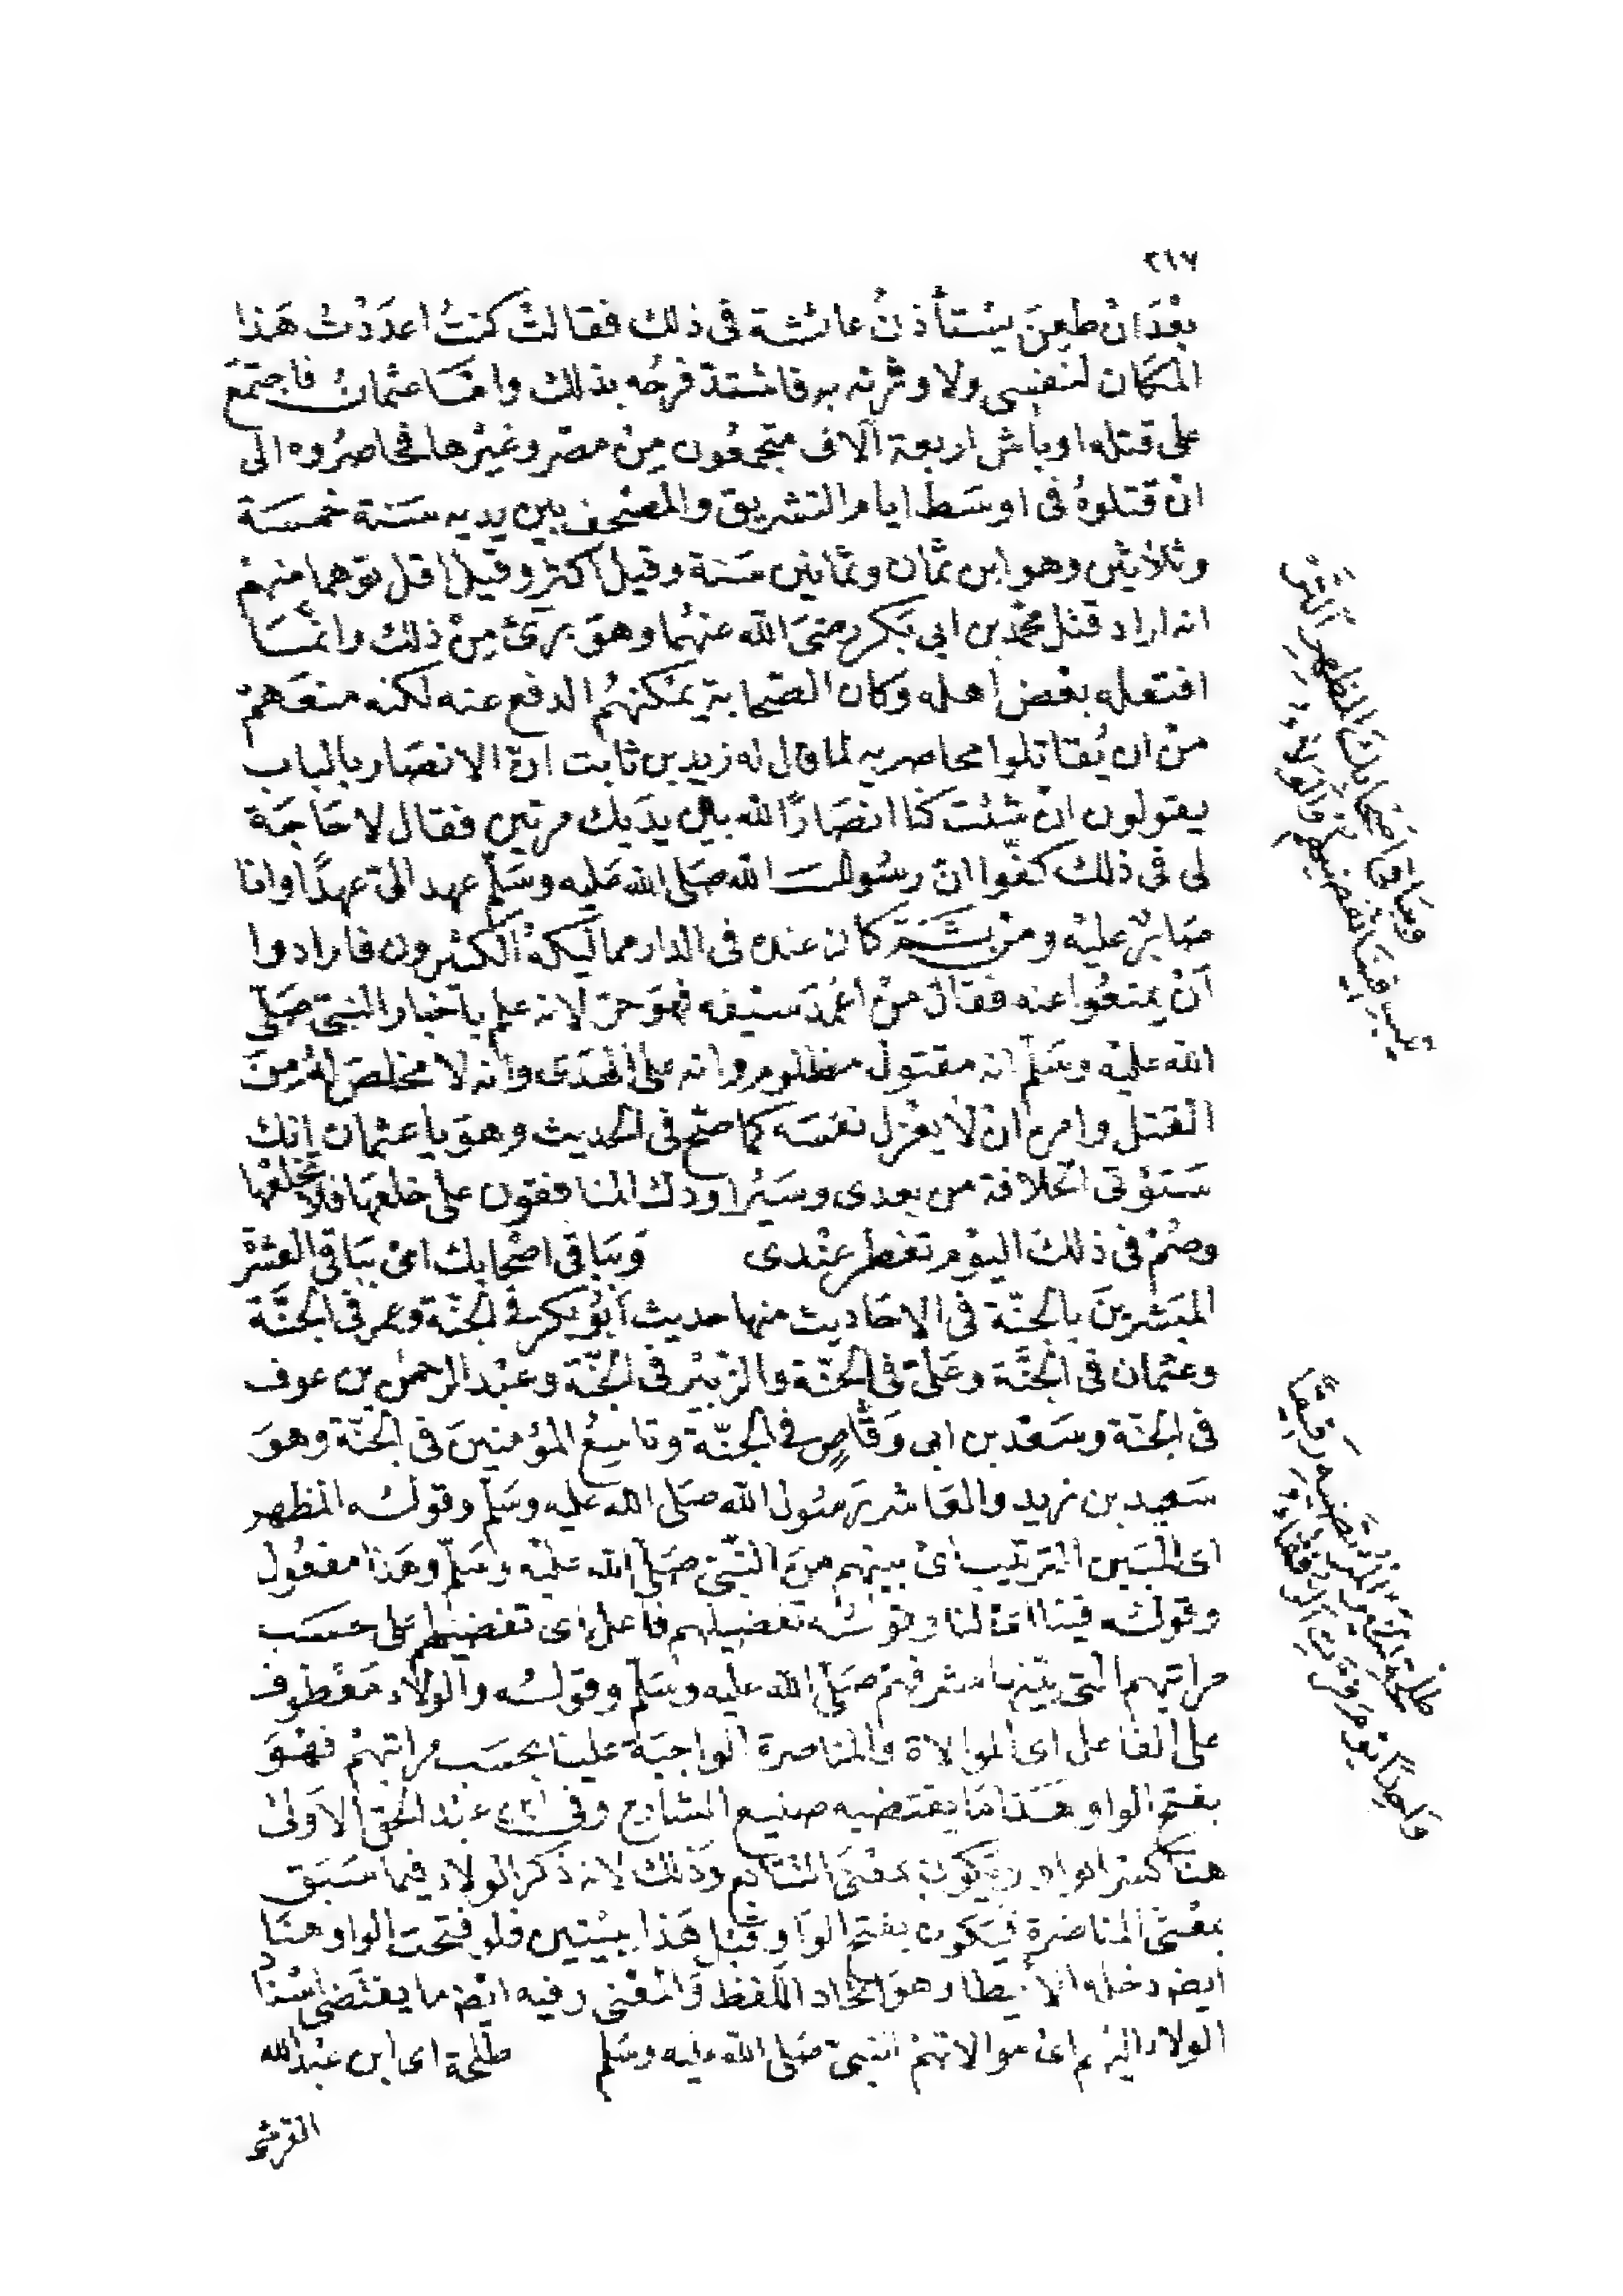 ٢١٧
بعْدَ انْ طعِنَ يسْتأذنُ عائشة فى ذلك فقالتْ كنتُ اعدَدْتُ هَذا
المكَان لنفسِى ولاوثرنه به فاشتدّ فرحُه بذلك وامّا عثمانُ فاجتمَعَ
على قتله اوباش اربعة آلاف متجمعُون مِنْ مصْر وغيْرها فحاصرُوه الى
انْ قتلوهُ فى اوسَط ايام التشريق والمصْحف بين يديه سَنة خمسَة
وثلاثين وهو ابن ثمان وثمانين سَنة وقيل اكثر وقيل اقل توهما منهمْ
انه اراد قتْل محمّد بن ابى بَكر رضىَ الله عنهُما وهوَ برئ مِنْ ذلك وانمّا
افتعله بعْض اهله وكان الصّحابة يمْكنهُم الدفع عنه لكنه منعَهمْ
منْ ان يُقاتلوا محاصريه لما قال له زيد بن ثابت انّ الانصَار بالباب
يقولون انْ شئْتَ كنّا انصَارًا لله بين يدَيك مرتين فقال لا حَاجَة
لى فى ذلك كفّوا انّ رسُول الله صَلى الله عَليه وسَلّم عهد الىّ عهدًا وانا
صَابرٌ عليْه ومنْ ثَمّ كان عنده فى الدار مماليكهُ الكثيرون فارادوا
أنْ يمنعُوا عنه فقال منْ اغمدَ سيْفه فهوَ حرّ لانه علم باخبار النبىّ صَلى
الله عليْه وسَلم انه مقتول مظلوم وانه على الهدَى وانه لا مخلصَ لهُ منَ
القتل وامره انْ لا يعْزل نفسَه كما صحّ فى الحديث وهوَ يا عثمان إنك
سَتؤتى الخلافة من بعدى وسَيُراودك المنافقون على خلعهَا فلا تخلعْها
وصُمْ فى ذلك اليوْم تفطر عِنْدى وَبَباقى اصْحابك اىْ بَباقى العشرْ
المبَشرينَ بالجنّة فى الاحَاديث منها حديث أبُو بكر فى الجنّة وعمر فى الجنَّة
وعثمان فى الجَنَّة وعَلىّ فى الجنّة والزّبَيْر فى الجنّة وعبْد الرحمن بن عوف
فى الجنّة وسَعْد بن ابى وَقّاصٍ فى الجنّة وتاسِعُ المؤمنينَ فى الجنّة وهوَ
سَعيد بن زيد والعَاشر رَسُول الله صَلى الله عليه وسَلّم وقولُه المظهر
اى المبَين الترتيب اىْ بينهم منَ النّبىّ صَلى الله عليْه وسَلم وهَذا مفعُول
وقولُه فينا اىْ لنا وقوْلُه تفضيلهم فاعل اى تفضيلهم على حسَب
مراتبهم التى بيّنها مشرفهمْ صَلى الله عليه وسَلّم وقولُه والولاَء مَعْطوف
على الفاعل اى الموالاة والمناصرة الواجبَة علينا بحسَب مراتبهمْ فهْوَ
بفتح الواو هَذا مَا يقتضيه صنيع الشارح وفى عبْد الحق الاَولىْ
هنا كسْر الواو ويَكون بمعْنى التتابع وذلك لانه ذكر الولاء فيما سَبَق
بمعْنى المناصَرة فيَكون بفتح الوَاو قبْل هَذا ببيْتين فلو فتحت الواو هنا
ايضا دخله الايطا وهوَ اتحاد اللفظ وَالمعْنى وفيه ايضا ما يقتضى اسْنَادُ
الولاء اليهم اىْ موالاتهمْ النبىّ صَلى الله عليه وسَلم طلحة اى ابن عبْد الله
القرشى
وَبَبَاقى اصْحَابِكَ المظهِرِ التّرْ
تيبِ فينَا تفضيلهمْ وَالولاَءُ
طلْحَة الخيْرِ المرْتضيهِ رَفيقًا
وَاحِدًا يَوْمَ فرّتِ الرّفقاءُ